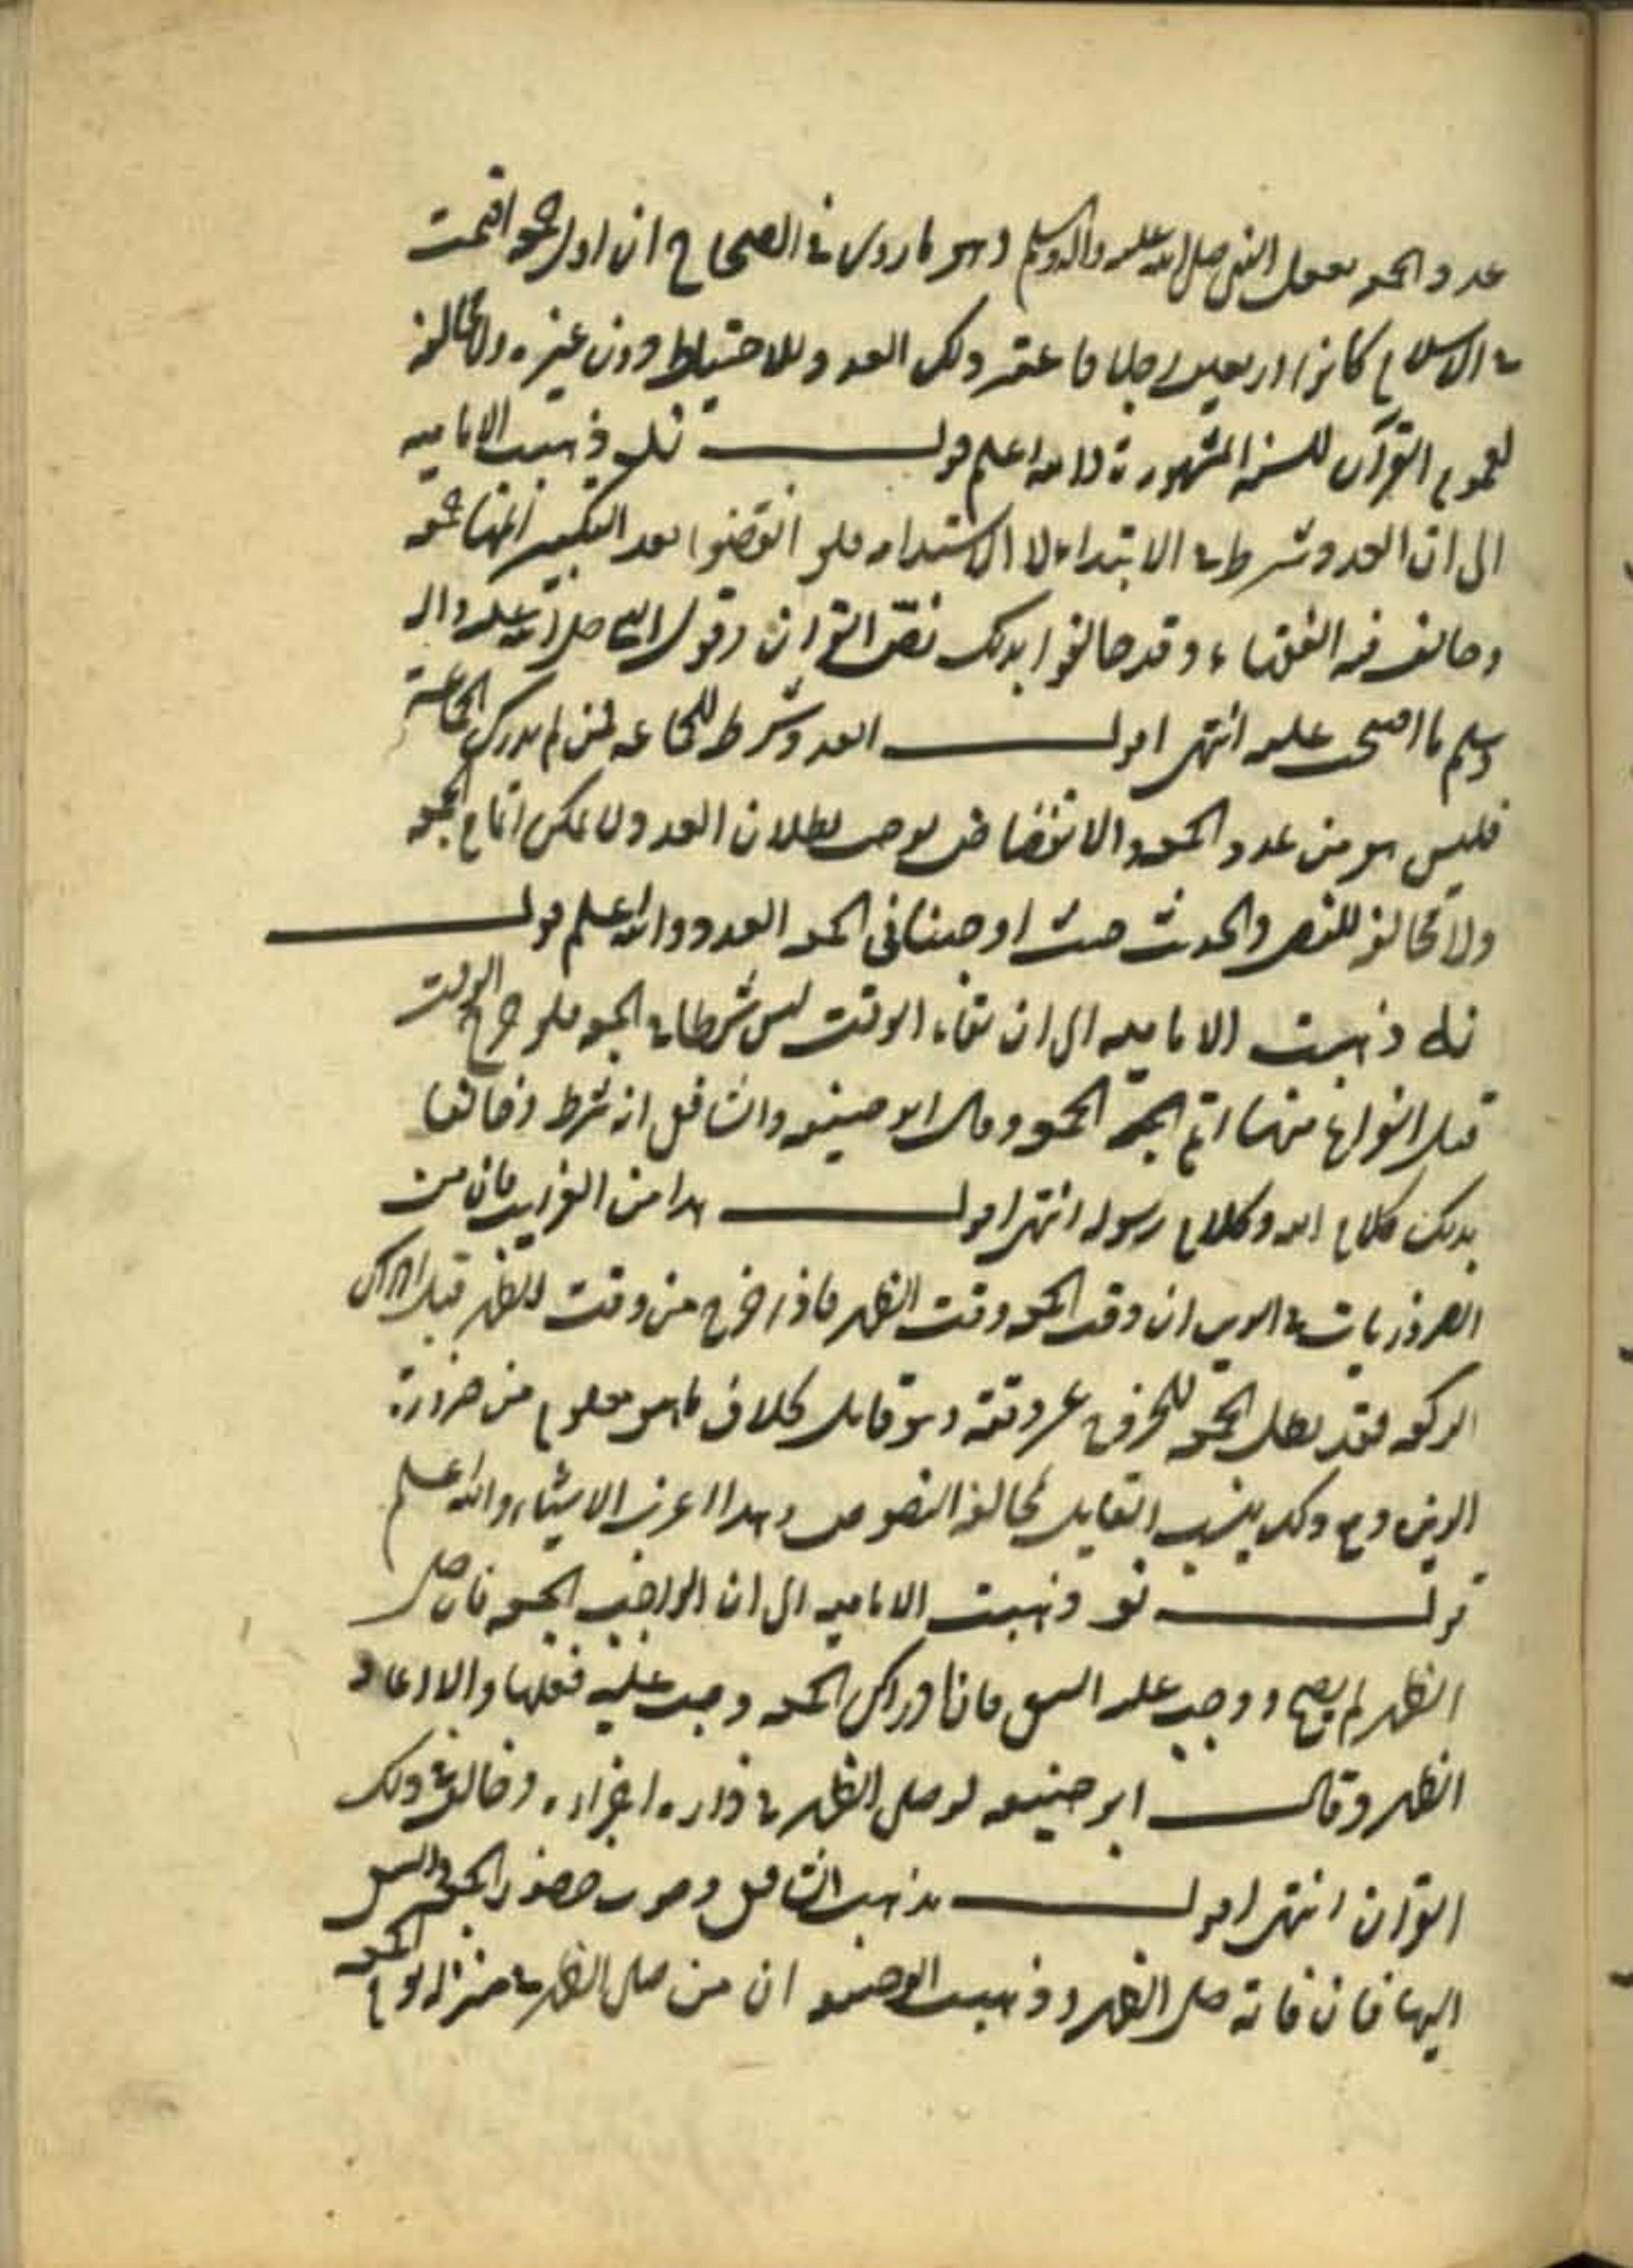 عدد الجمعه بفعل النبي صلى الله عليه واله وسلم وهو ما روى في الصحاح ان اول جمعه اقيمت
في الاسلام كانوا اربعين رجلا فاعتبر ذلك العدد للاحتياط دون غيره ولا مخالفة
لعموم القرآن للسنه المشهورة والله اعلم قولـــه نل ذهبت الاماميه
الى ان العدد شرط في الابتداء لا الاستدامه فلو انفضوا بعد التكبير اتمها جمعه
وخالف فيه الفقهاء وقد خالفوا بذلك نص القران وقول النبي صلى الله عليه واله
وسلم ما اصحى عليه انتهى اقولـــ العدد شرط للجماعه فمن لم يدرك الجماعة
فليس هو من عدد الجمعه والانفضاض يوجب بطلان العدد ولا يمكن اتمام الجمعه
ولا مخالفة للنص والحديث حيث اوجبنا في الجمعه العدد والله اعلم قولـــه
ذهبت الاماميه الى ان بقاء الوقت ليس شرطا في الجمعه فلو خرج الوقت
قبل الفراغ منها اتم الجمعه وقال ابو حنيفه والشافعى انه شرط وخالفا
بذلك كلام الله وكلام رسوله انتهى اقولـــ هذا من الغرايب فان من
الضروريات في الدين ان وقت الجمعه وقت الظهر فاذا خرج من وقت الظهر قبل ادراك
الركعه فقد بطل الجمعه للخروج عن وقته وهو قايل بخلاف ما هو معلوم من ضرورة
الدين ومع ذلك ينسب القايل لمخالفة النصوص وهذا اغرب الاشياء والله اعلم
قولـــه نو ذهبت الاماميه الى ان الواجب الجمعه فان صلى
الظهر لم يصح ووجب عليه السعى فان ادرك الجمعه وجبت عليه فعلها والا اعاد
الظهر وقالـــ ابو حنيفه لو صلى الظهر في داره اجزاه وخالف في ذلك
القران انتهى اقولـــ مذهب الشافعى وجوب حضور الجمعه والسعى
اليها فان فاتة صلى الظهر وذهب ابو حنيفه ان من صلى الظهر في منزله يوم الجمعه